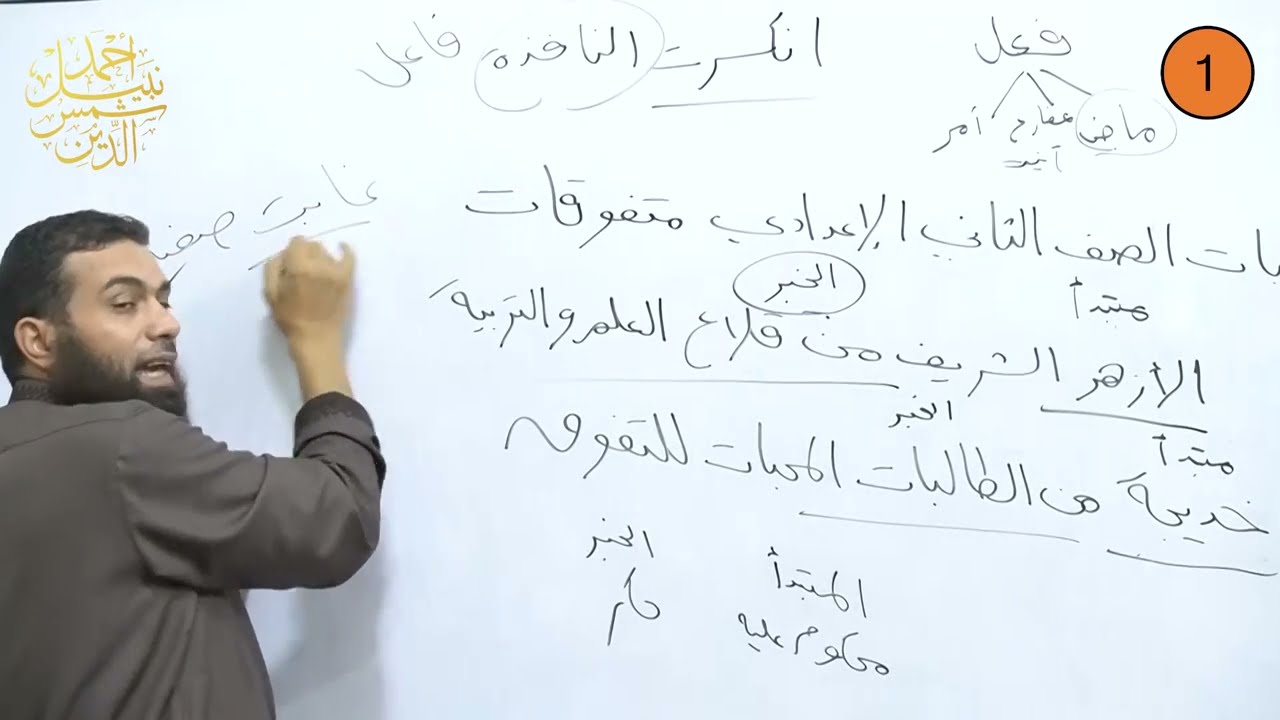 أحمد
نبيل
شمس
الدين
1
فعل
ماضي مضارع أمر
انكسرت النافذة فاعل
غابت
الصف الثاني الإعدادي متفوقات
مبتدأ
الخبر
الأزهر الشريف من قلاع العلم والتربية
مبتدأ
الخبر
خديجة من الطالبات المحبات للتفوق
المبتدأ
الخبر
محكوم عليه